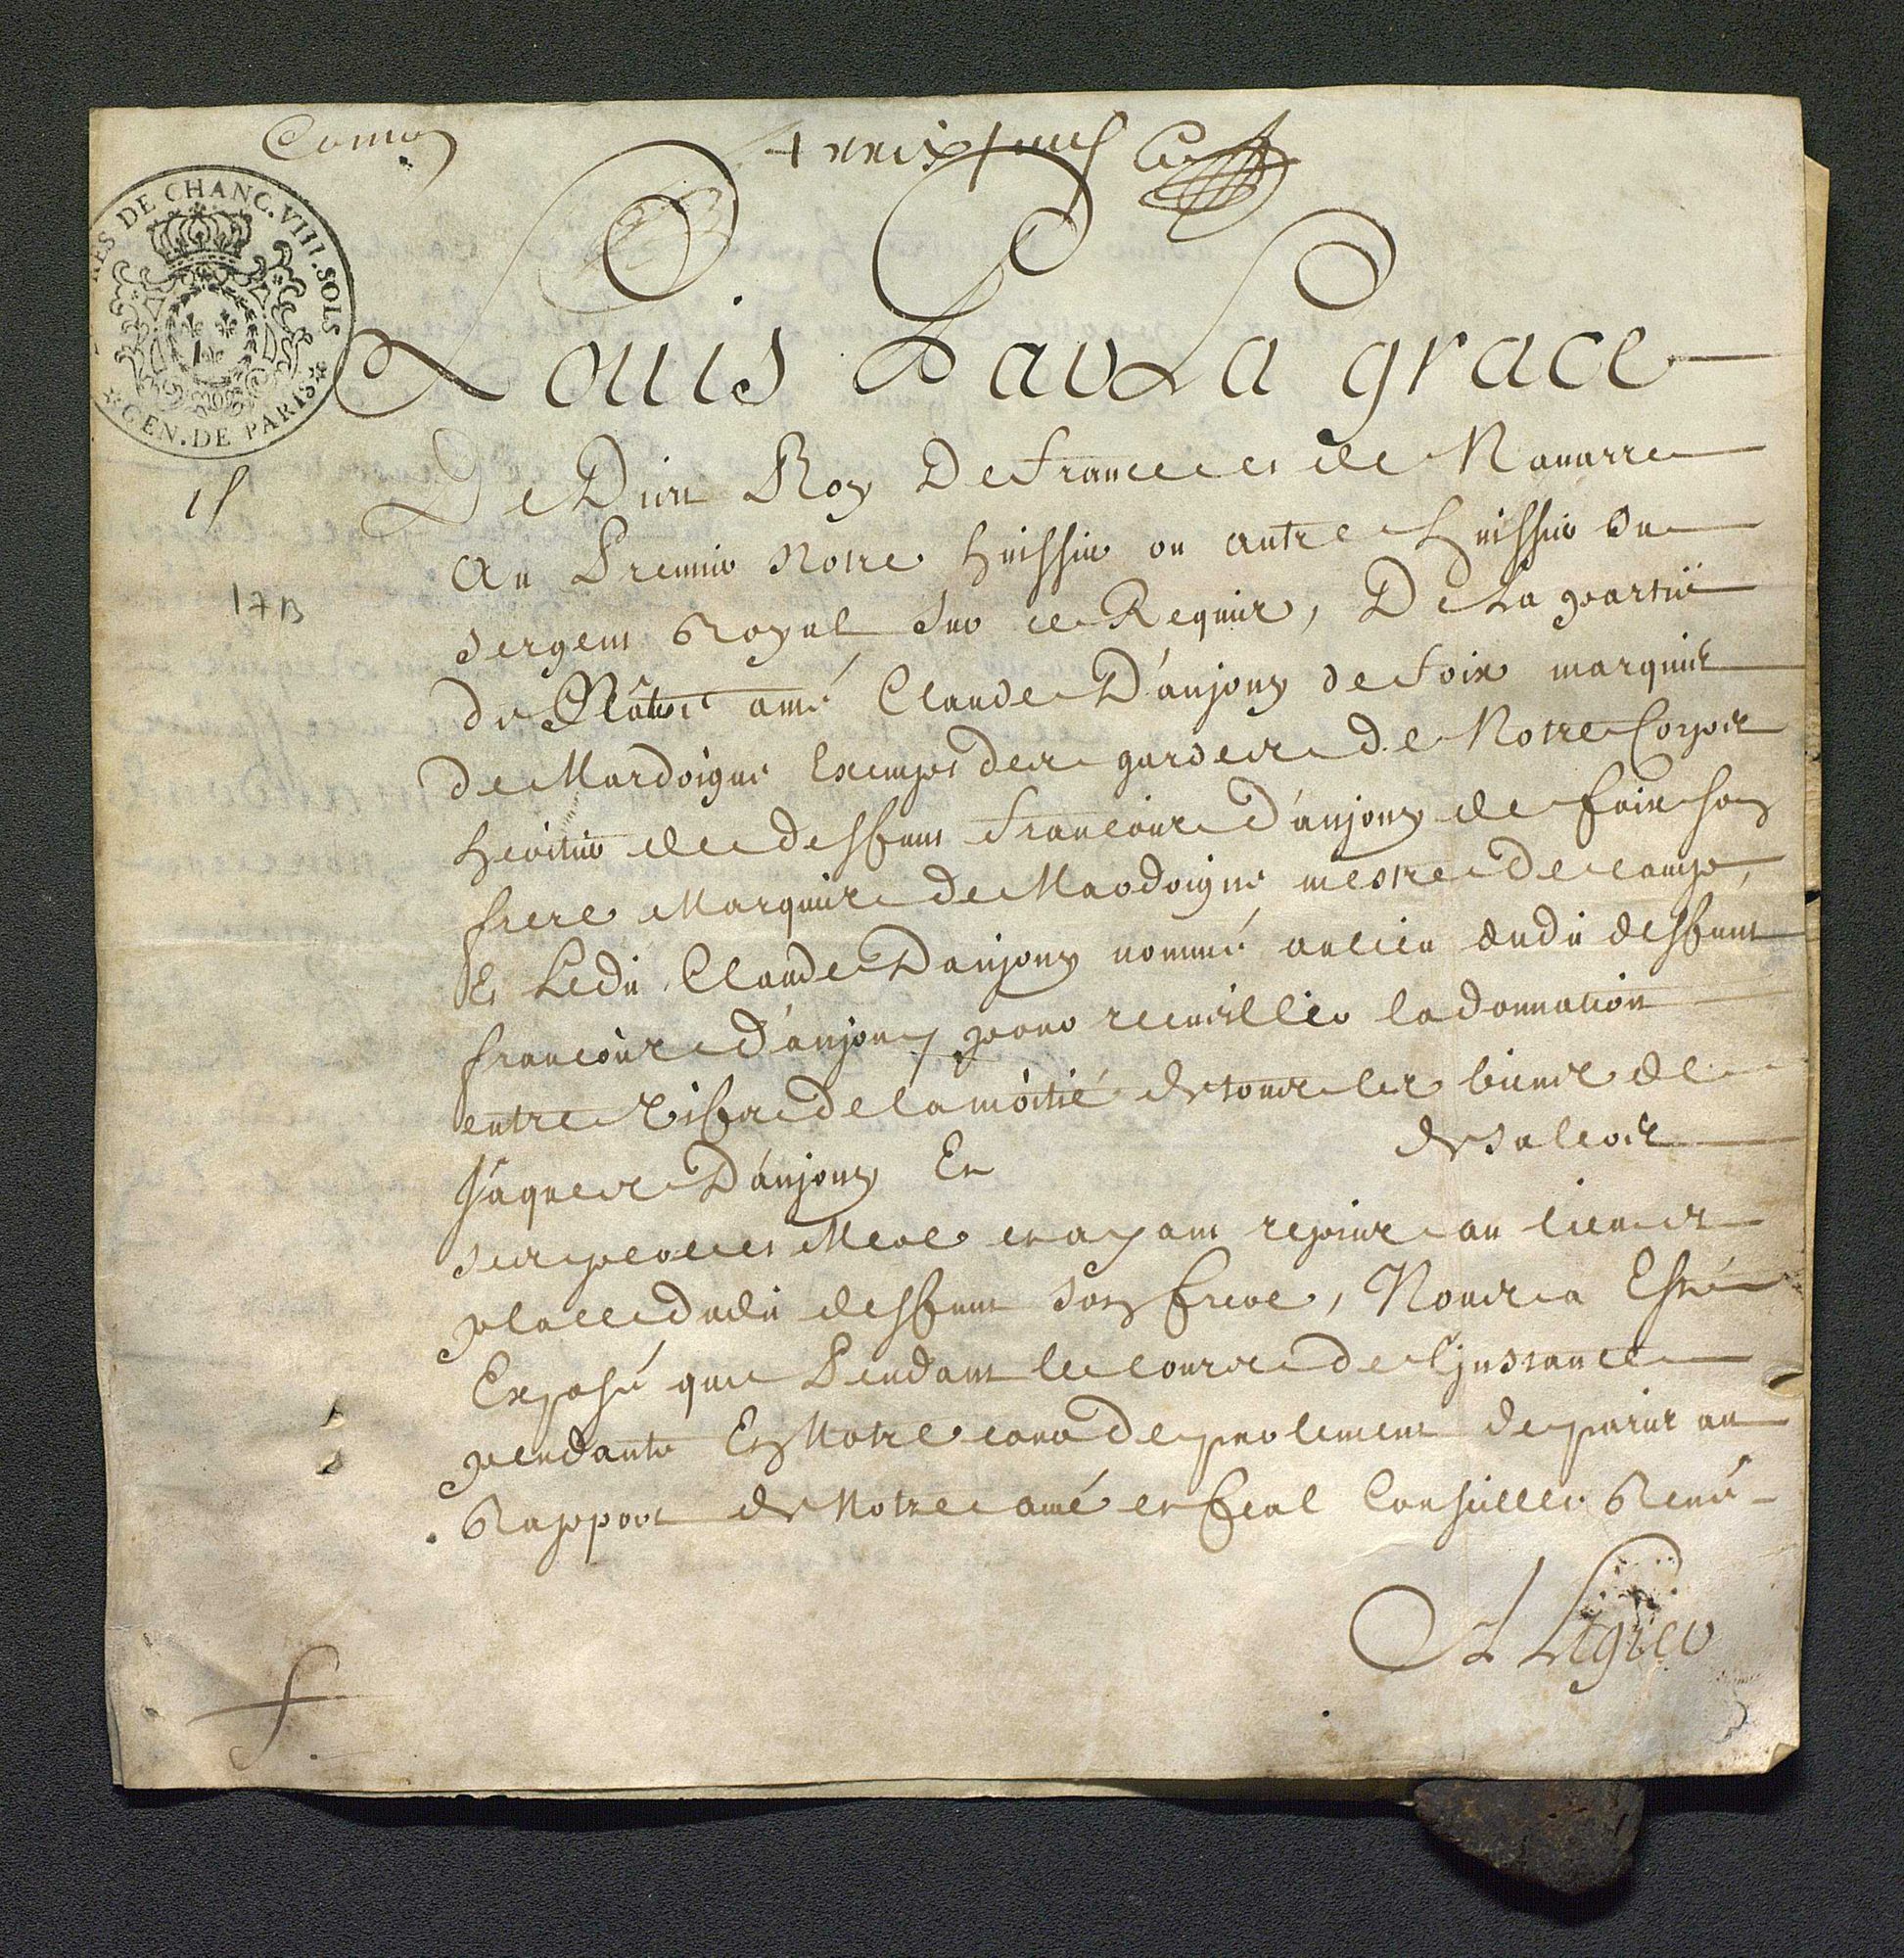 RES DE CHANC. VIII. SOLS
GEN. DE PARIS
Louis Par La grace
De Dieu Roy De france et de Nauarre
Au Premier Notre huissier ou autre huissier ou
sergent Royal sur ce Requis, De La partie
de Nôtre amé Claude D'anjony de foix marquis
de Mardoigne Exempt des gardes de Notre Corps
heritier de deffunt francois D'anjony de foix son
frere Marquis de Mardoigne mestre De camp,
Et Ledit Claude Danjony nommé au lieu dudit deffunt
francois D'anjony pour recueillir la donnation
entre vifs de la moitié de tous les biens de
Jaques D'anjony Et de salers
ses pere et Mere et ayant repris au lieu et
place dudit deffunt son frere, Nous a Esté
Exposé que Pendant le cours de l'jnstance
pendante En Notre cour de parlement de paris au
Rapport de Notre amé et feal Conseiller René